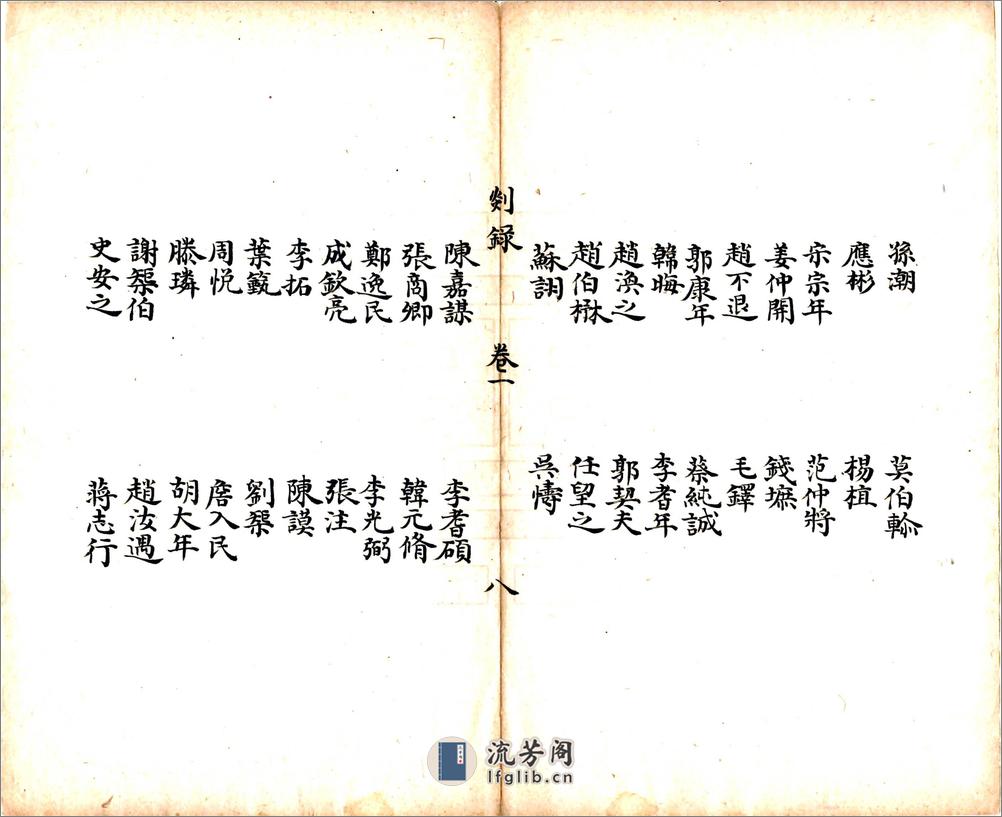 孫潮 莫伯軫
應彬 楊植
宗宗年 范仲將
姜仲開 錢𡐓
趙不退 毛鐸
郭康年 蔡純誠
韓晦 李耆年
趙渙之 郭契夫
趙伯楙 任望之
蘇詡 吳懤
剡錄 卷一 八
陳嘉謀 李耆碩
張商卿 韓元脩
鄭逸民 李光弼
成欽亮 張注
李拓 陳謨
葉籈 劉㮚
周悅 詹入民
滕璘 胡大年
謝㮚伯 趙汝遇
史安之 蔣志行
流芳阁
lfglib.cn